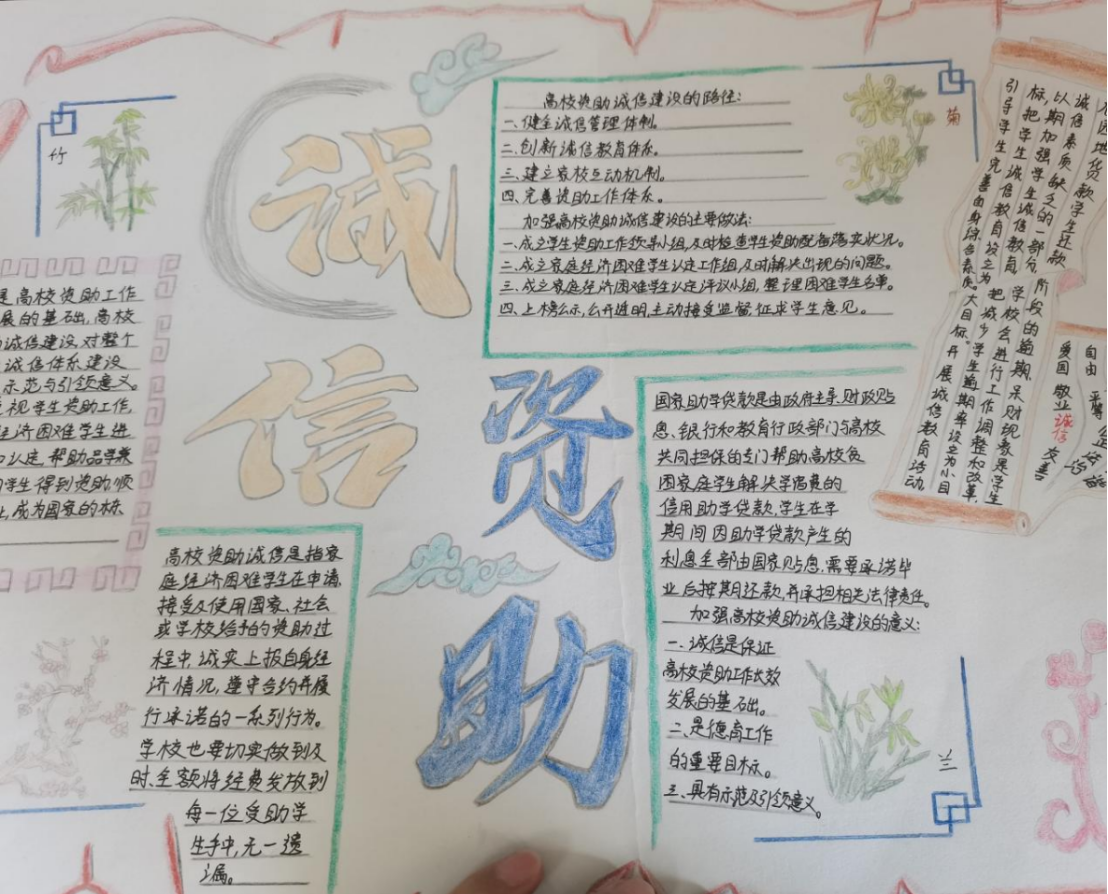 诚
信
资
助
竹
是高校资助工作
展的基础,高校
诚信建设,对整个
诚信体系建设
示范与引领意义。
视学生资助工作,
经济困难学生进
认定,帮助品学兼
学生得到资助顺
业,成为国家的栋
高校资助诚信是指家
庭经济困难学生在申请、
接受及使用国家、社会
或学校给予的资助过
程中,诚实上报自身经
济情况,遵守合约开展
行承诺的一系列行为。
学校也要切实做到及
时、全额将经费发放到
每一位受助学
生手中,无一遗
漏。
高校资助诚信建设的路径:
一、健全诚信管理体制。
二、创新诚信教育体系。
三、建立家校互动机制。
四、完善资助工作体系。
加强高校资助诚信建设的主要做法:
一、成立学生资助工作领导小组,及时检查学生资助配备落实状况。
二、成立家庭经济困难学生认定工作组,及时解决出现的问题。
三、成立家庭经济困难学生认定评议小组,整理困难学生名单。
四、上榜公示,公开透明,主动接受监督,征求学生意见。
菊
国家助学贷款是由政府主导,财政贴
息、银行和教育行政部门与高校
共同担保的专门帮助高校贫
困家庭学生解决学习费的
信用助学贷款,学生在学
期间因助学贷款产生的
利息全部由国家贴息,需要承诺毕
业后按期还款,并承担相关法律责任。
加强高校资助诚信建设的意义:
一、诚信是保证
高校资助工作长效
发展的基础。
二、是德育工作
的重要目标。
三、具有示范及引领意义。
兰
地贷款学生还款
诚信素质缺乏的一部分,
以期加强学生诚信教育
标,把学生诚信教育设立为
引导学生完善自身综合素质。大目标。开展诚信教育活动
阶段的逾期,呆财现象是学生
学校会进行工作调整和改革,
把减少学生逾期率设立为小目
自由 平等 公正 法治
爱国 敬业 诚信 友善